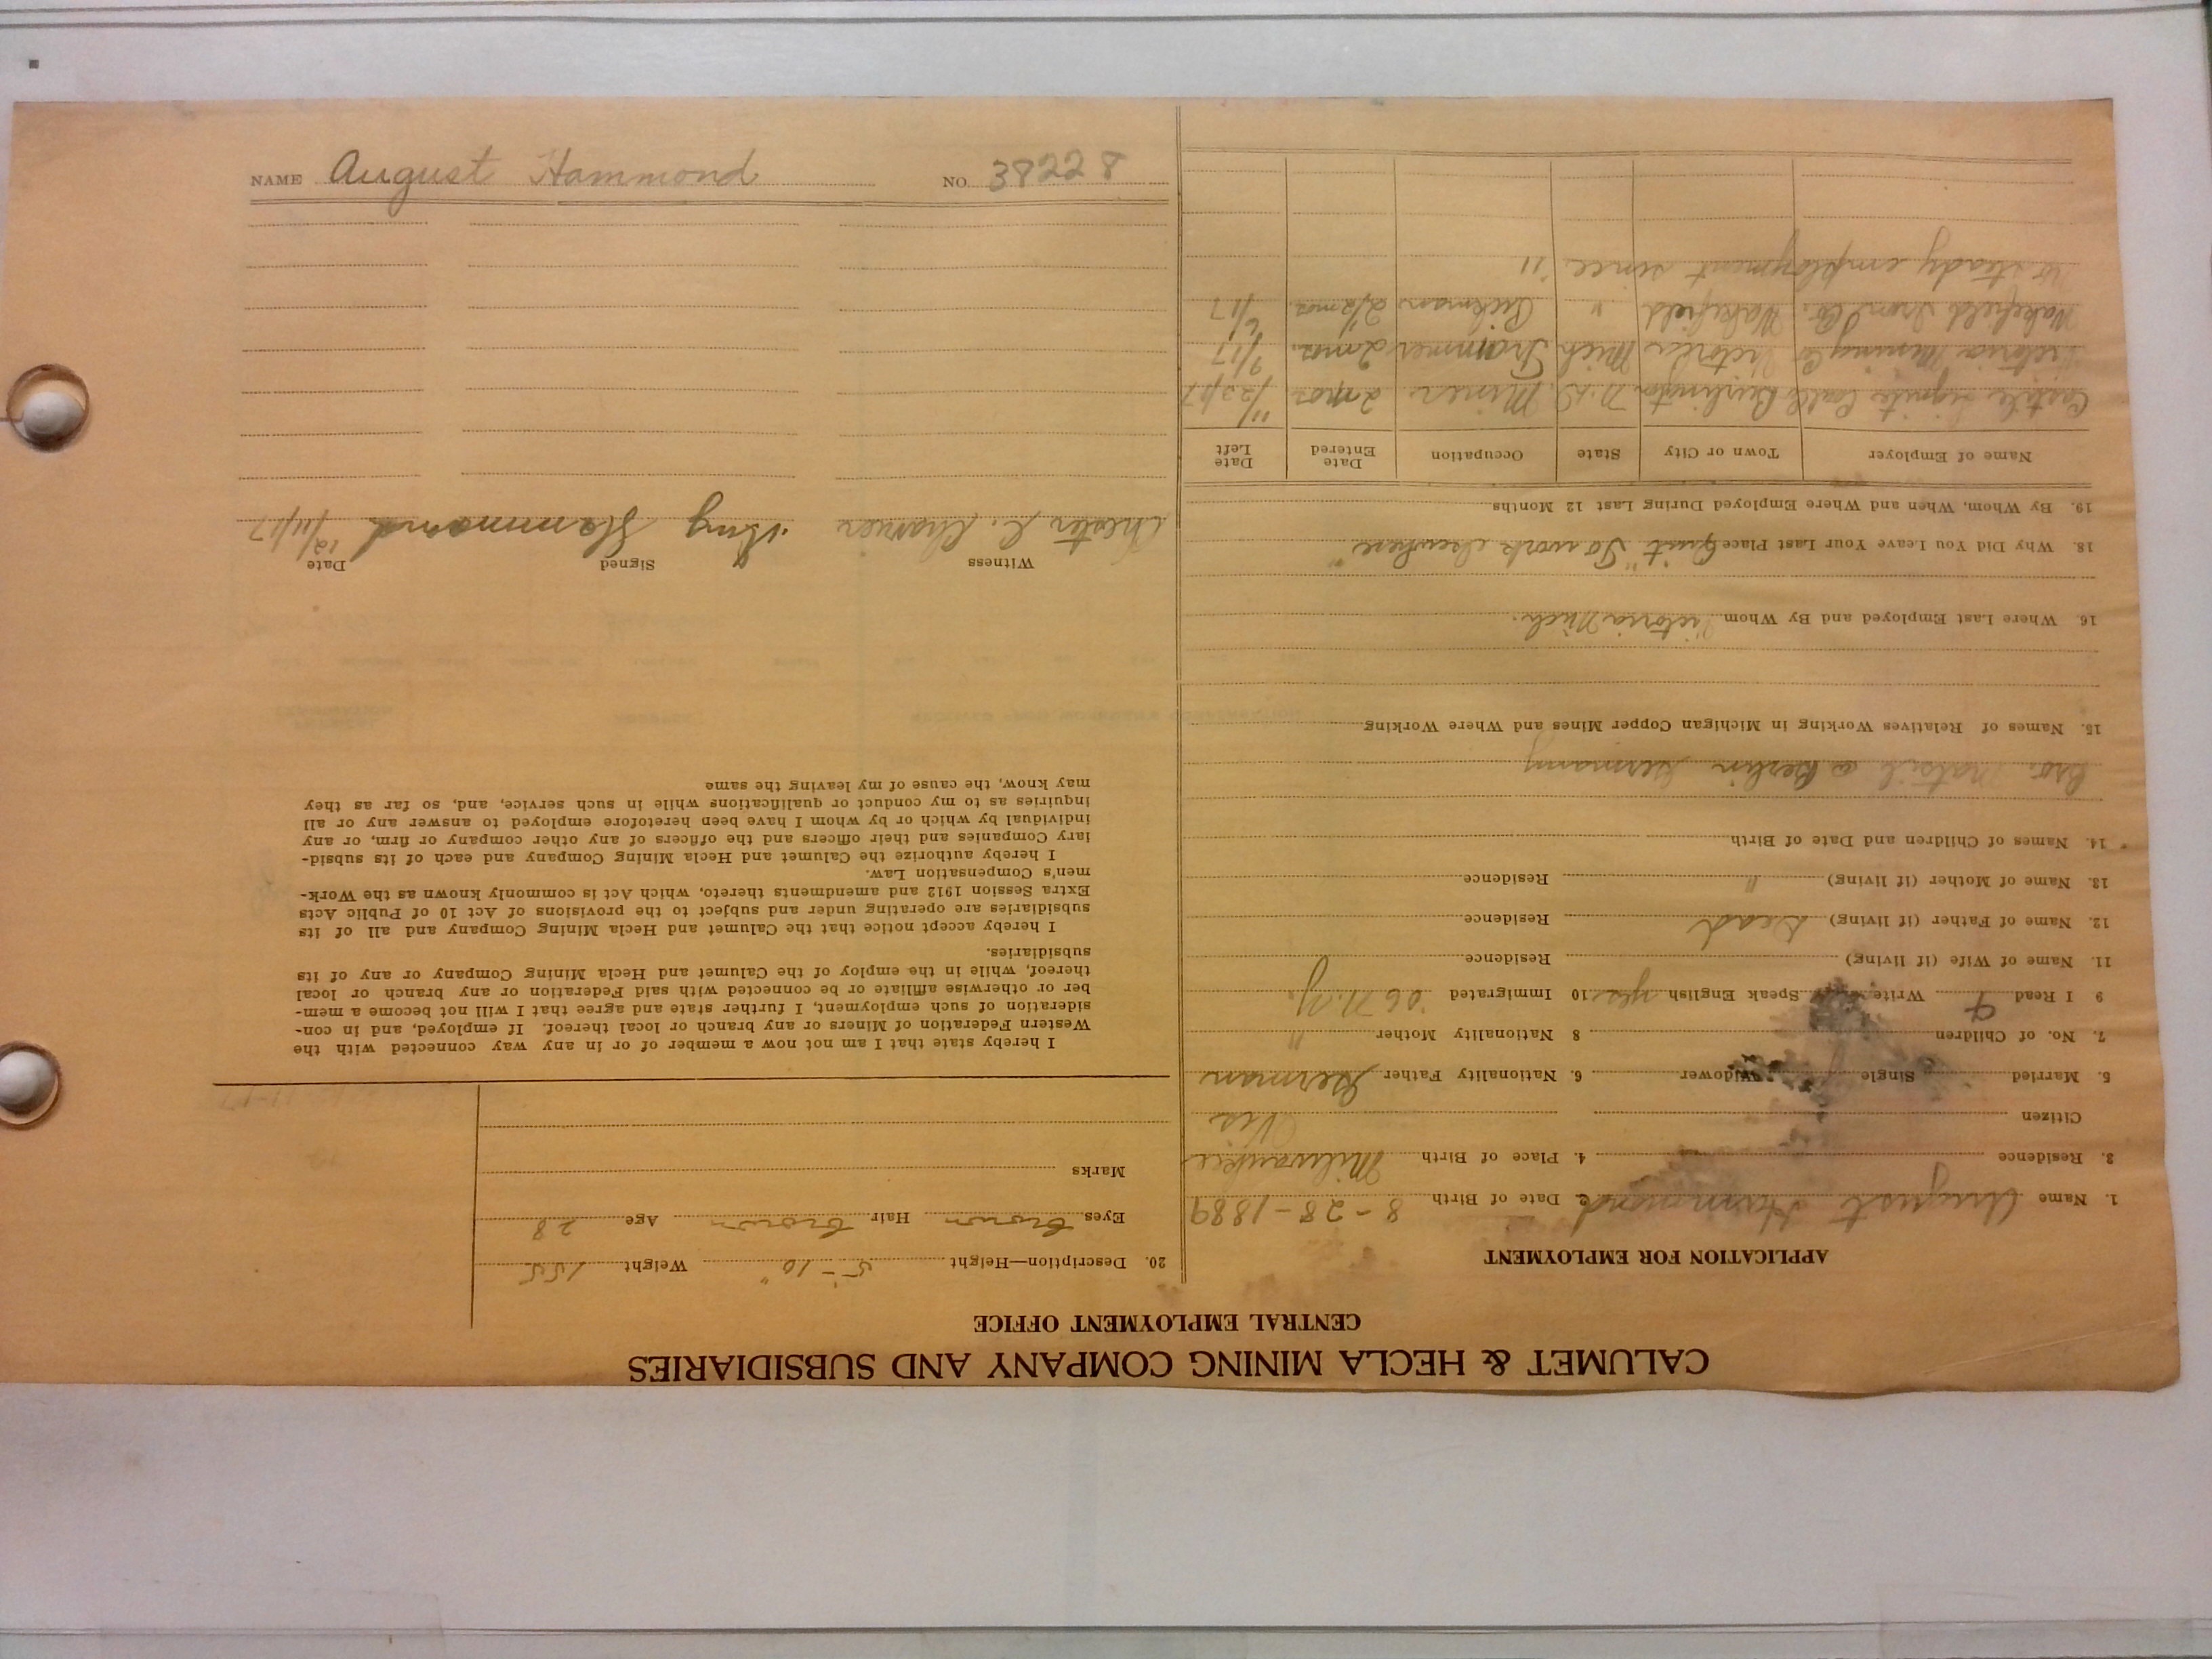 NAME August Hammond NO. 38228
CALUMET & HECLA MINING COMPANY AND SUBSIDIARIES
CENTRAL EMPLOYMENT OFFICE
APPLICATION FOR EMPLOYMENT
1. Name August Hammond 2. Date of Birth 8-28-1889
3. Residence 4. Place of Birth Milwaukee
Citizen Wis
5. Married Single Widower 6. Nationality Father German
7. No. of Children 8 Nationality Mother "
9 I Read Write Speak English yes 10 Immigrated '06 N.Y.
11. Name of Wife (if living) Residence
12. Name of Father (if living) Dead Residence
13. Name of Mother (if living) " Residence
14. Names of Children and Date of Birth
Bro. Berlin Germany
15. Names of Relatives Working in Michigan Copper Mines and Where Working
16. Where Last Employed and By Whom Victoria Mich.
18. Why Did You Leave Your Last Place Quit "To work elsewhere"
19. By Whom, When and Where Employed During Last 12 Months
Name of Employer Town or City State Occupation Date Entered Date Left
Lignite Coal Co Burlington N.D. Miner 2 mos 11/23/17
Victoria Mining Co Victoria Mich Trammer 2 mos. 9/17
Wakefield Iron Co. Wakefield " 2 1/2 mos. 6/17
steady employment since "11
20. Description—Height 5'-10" Weight 155
Eyes brown Hair brown Age 28
Marks
I hereby state that I am not now a member of or in any way connected with the
Western Federation of Miners or any branch or local thereof. If employed, and in con-
sideration of such employment, I further state and agree that I will not become a mem-
ber or otherwise affiliate or be connected with said Federation or any branch or local
thereof, while in the employ of the Calumet and Hecla Mining Company or any of its
subsidiaries.
I hereby accept notice that the Calumet and Hecla Mining Company and all of its
subsidiaries are operating under and subject to the provisions of Act 10 of Public Acts
Extra Session 1912 and amendments thereto, which Act is commonly known as the Work-
men's Compensation Law.
I hereby authorize the Calumet and Hecla Mining Company and each of its subsid-
iary Companies and their officers and the officers of any other company or firm, or any
individual by which or by whom I have been heretofore employed to answer any or all
inquiries as to my conduct or qualifications while in such service, and, so far as they
may know, the cause of my leaving the same
Witness Signed Date
Chester Aug Hammond 12/11/17